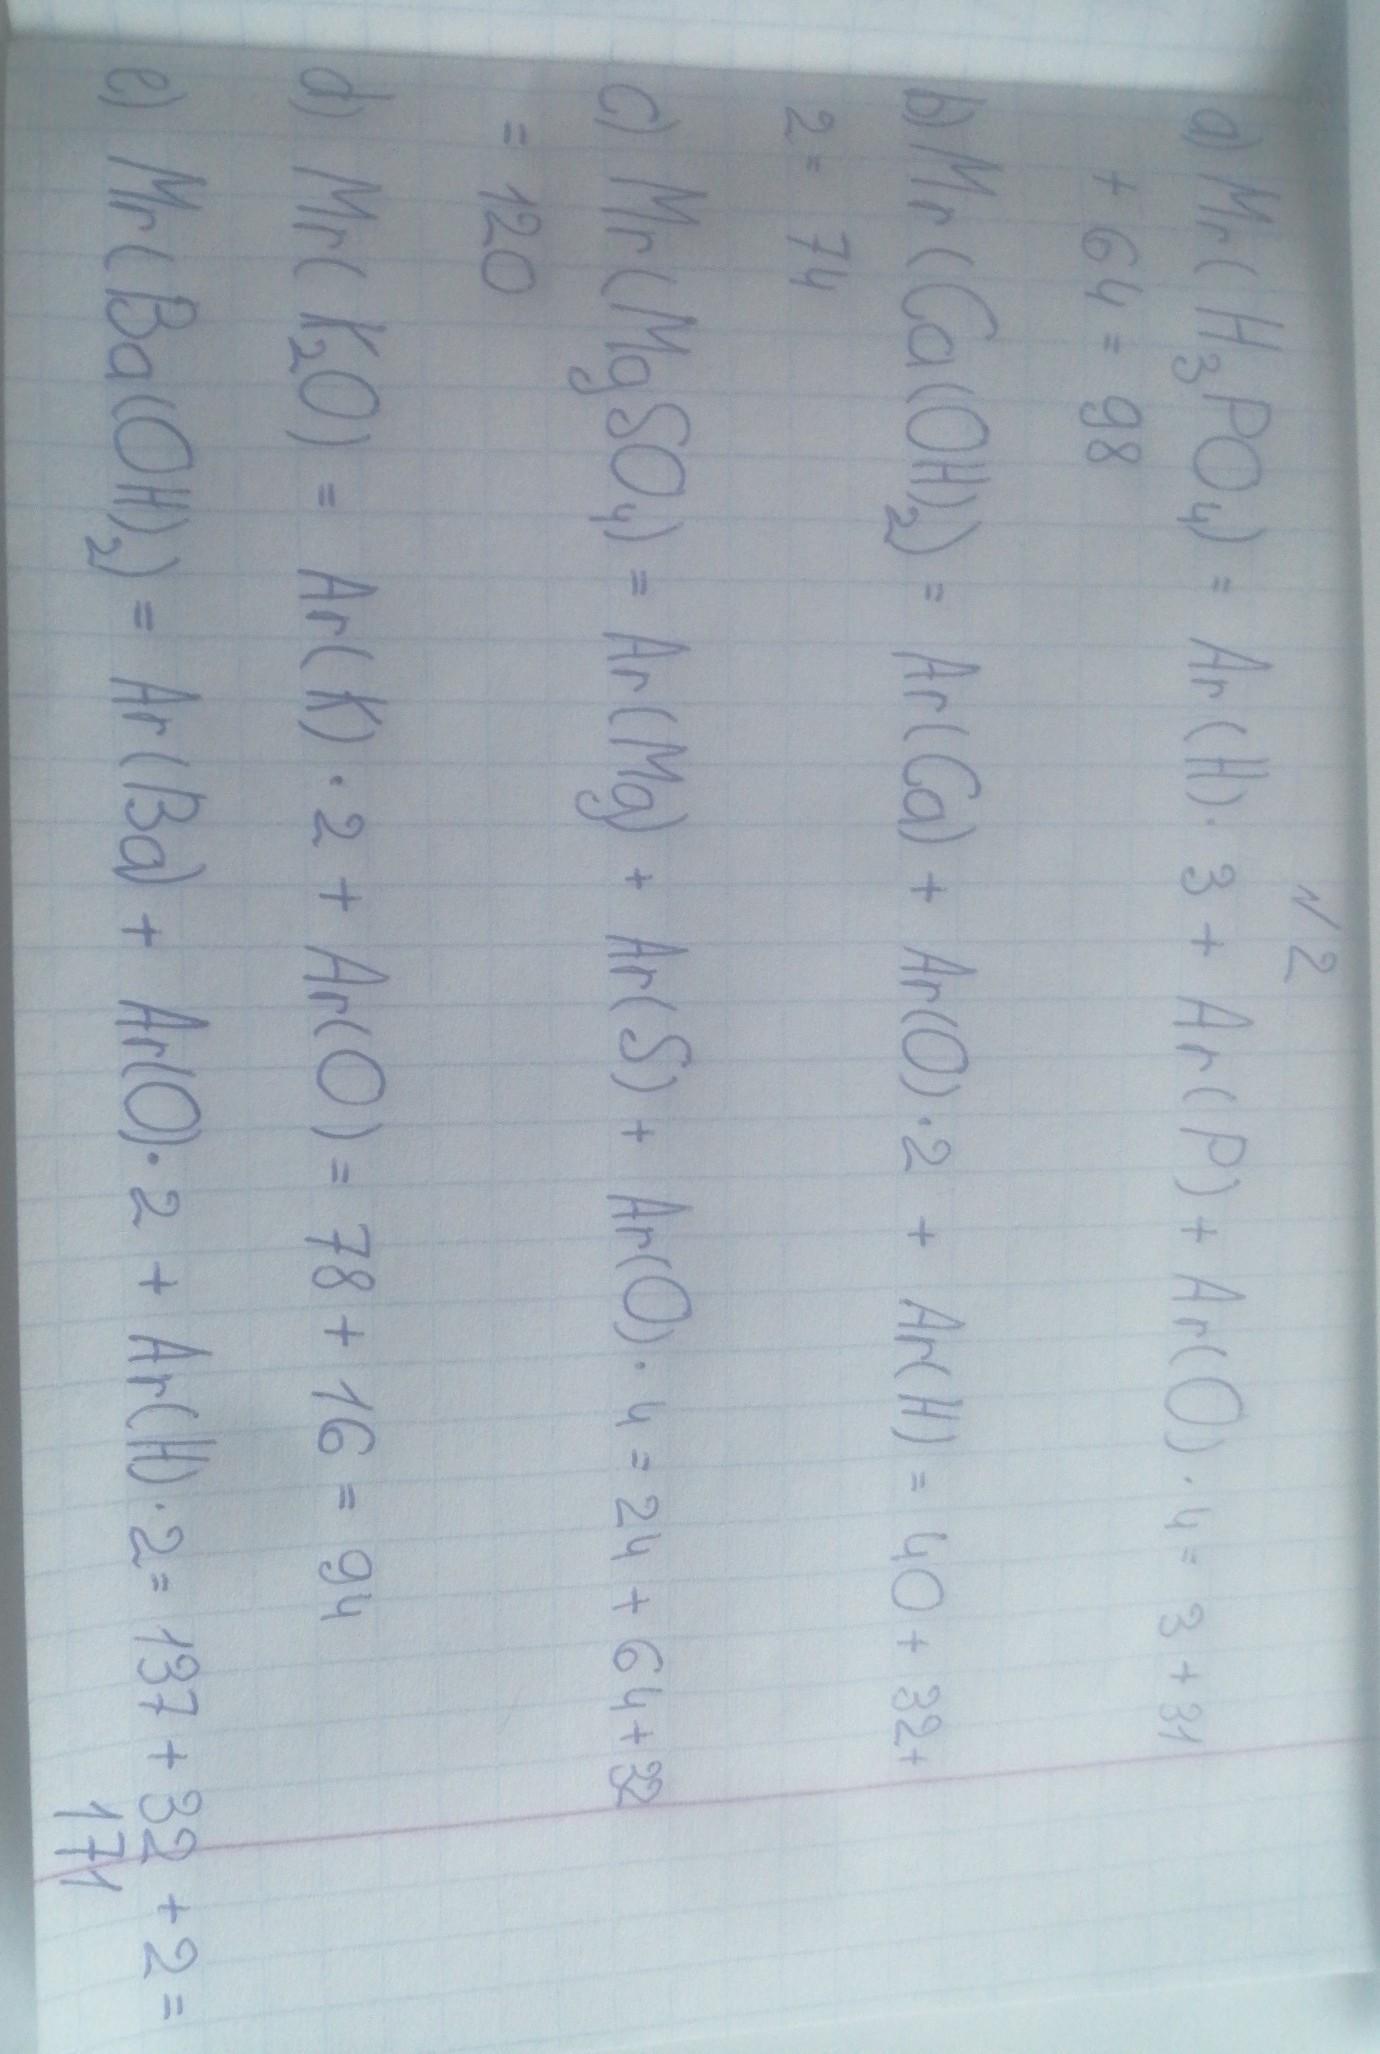 №2
a) Mr(H₃PO₄) = Ar(H)·3 + Ar(P) + Ar(O)·4 = 3 + 31
+ 64 = 98
b) Mr(Ca(OH)₂) = Ar(Ca) + Ar(O)·2 + Ar(H) = 40 + 32 +
2 = 74
c) Mr(MgSO₄) = Ar(Mg) + Ar(S) + Ar(O)·4 = 24 + 64 + 32
= 120
d) Mr(K₂O) = Ar(K)·2 + Ar(O) = 78 + 16 = 94
e) Mr(Ba(OH)₂) = Ar(Ba) + Ar(O)·2 + Ar(H)·2 = 137 + 32 + 2 =
171